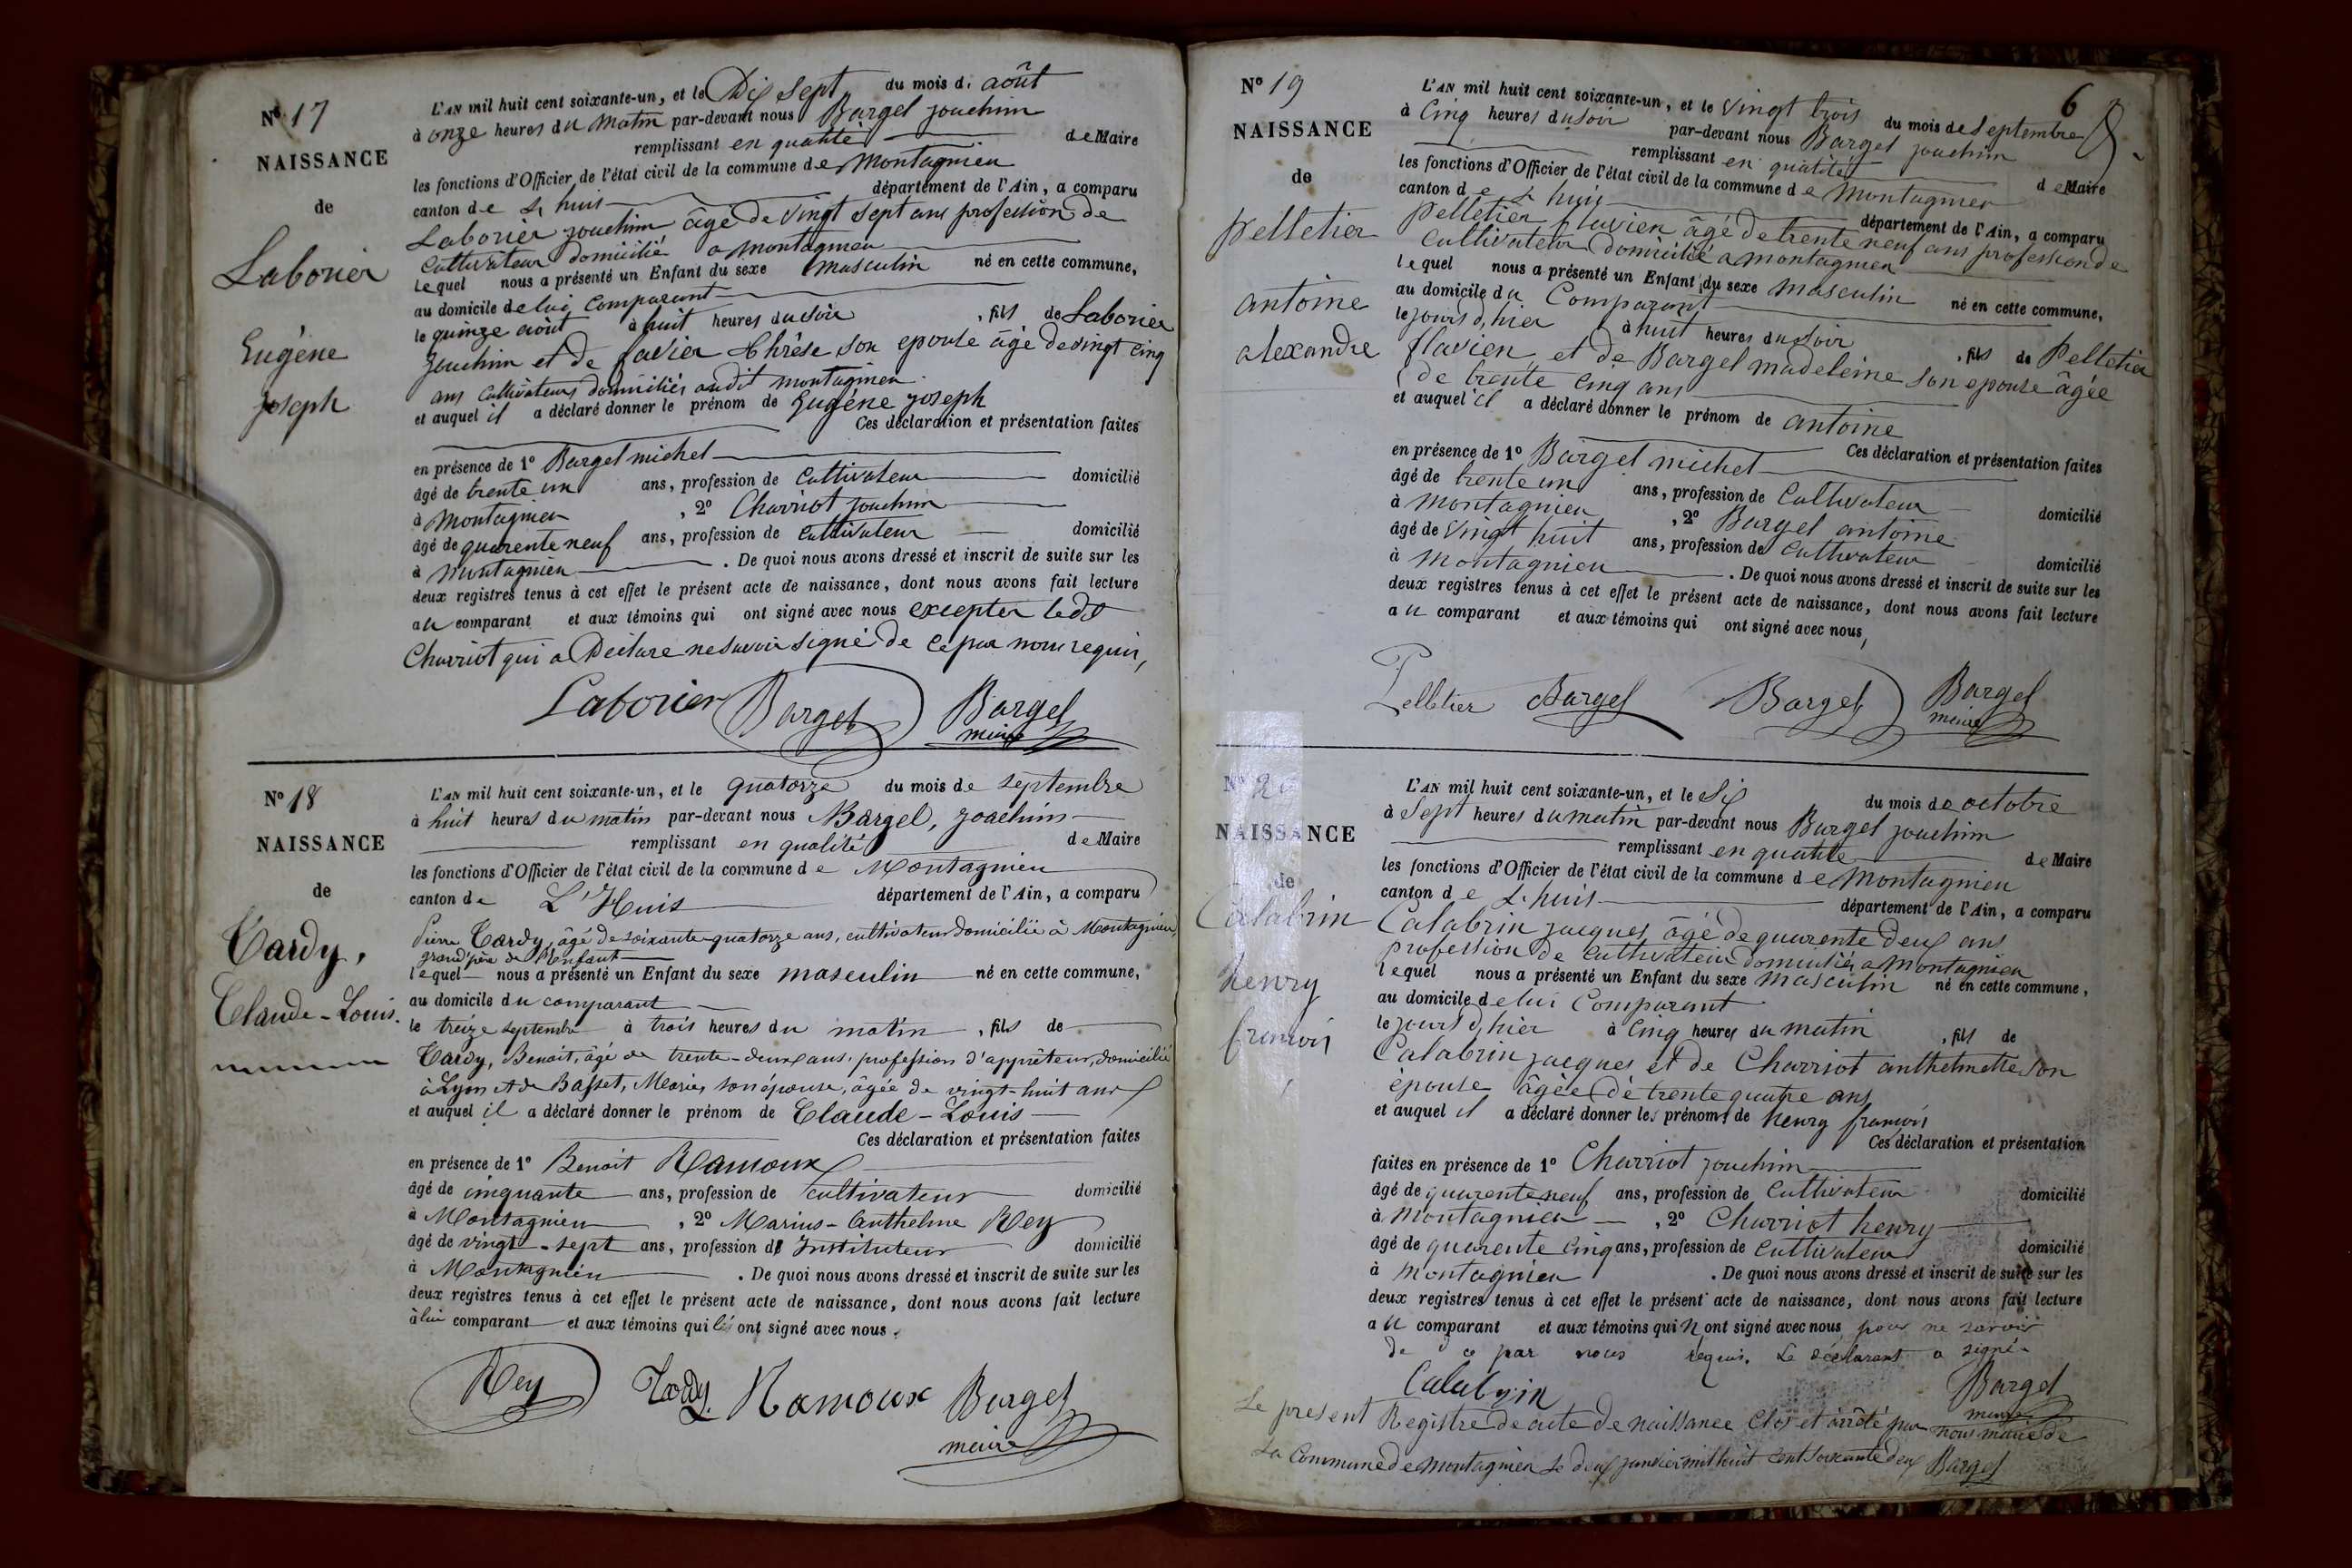 No 17
NAISSANCE
de
Laborier
Eugène
Joseph
L'AN mil huit cent soixante-un, et le Dix sept du mois d. août
à onze heures du matin par-devant nous Bargel jouchim
remplissant en qualité de Maire
les fonctions d'Officier de l'état civil de la commune de Montagnieu
canton de L huis département de l'Ain, a comparu
Laborier jouchim âgé de vingt sept ans profession de
Cultivateur domicilié a montagnieu
lequel nous a présenté un Enfant du sexe masculin né en cette commune,
au domicile de lui Comparant
le quinze août à huit heures du soir , fils de Laborier
Jouchim et de favier thrèse son epouse âgé de vingt cinq
ans Cultivateurs domiciliés audit montagnieu
et auquel il a déclaré donner le prénom de Eugène joseph
Ces déclaration et présentation faites
en présence de 1º Bargel michel
âgé de trente un ans, profession de Cultivateur domicilié
à Montagnieu , 2º Charriot jouchim
âgé de quarente neuf ans, profession de Cultivateur domicilié
à montagnieu . De quoi nous avons dressé et inscrit de suite sur les
deux registres tenus à cet effet le présent acte de naissance, dont nous avons fait lecture
au comparant et aux témoins qui ont signé avec nous excepter ledt
Charriot qui a Déclare ne savoir signé de ce par nous requis,
Laborier Bargel Bargel
maire
No 18
NAISSANCE
de
Tardy,
Claude-Louis.
L'AN mil huit cent soixante-un, et le quatorze du mois de septembre
à huit heures du matin par-devant nous Bargel, Joachim
remplissant en qualité de Maire
les fonctions d'Officier de l'état civil de la commune de Montagnieu
canton de L'Huis département de l'Ain, a comparu
Pierre Tardy, âgé de soixante-quatorze ans, cultivateur domicilié à Montagnieu,
grand'père de l'Enfant
lequel nous a présenté un Enfant du sexe masculin né en cette commune,
au domicile du comparant
le treize septembre à trois heures du matin , fils de
Tardy, Benoit, âgé de trente-deux ans, profession d'apprêteur, domicilié
à Lyon et de Basset, Marie, son épouse, âgée de vingt-huit ans
et auquel il a déclaré donner le prénom de Claude-Louis
Ces déclaration et présentation faites
en présence de 1º Benoit Ramoux
âgé de cinquante ans, profession de cultivateur domicilié
à Montagnieu , 2º Marius-Anthelme Rey
âgé de vingt-sept ans, profession d' Instituteur domicilié
à Montagnieu . De quoi nous avons dressé et inscrit de suite sur les
deux registres tenus à cet effet le présent acte de naissance, dont nous avons fait lecture
à lui comparant et aux témoins qui ont signé avec nous.
Rey Tardy Ramoux Bargel
maire
6
No 19
NAISSANCE
de
pelletier
antoine
alexandre
L'AN mil huit cent soixante-un, et le vingt trois du mois de septembre
à Cinq heures du soir par-devant nous Bargel jouchim
remplissant en qualité de Maire
les fonctions d'Officier de l'état civil de la commune de Montagnieu
canton de L huis département de l'Ain, a comparu
Pelletier flavien âgé de trente neuf ans profession de
Cultivateur Domicilié a montagnieu
lequel nous a présenté un Enfant du sexe masculin né en cette commune,
au domicile du Comparant
le jours d,hier à huit heures du soir , fils de Pelletier
flavien et de Bargel madeleine son epouse âgée
de trente Cinq ans
et auquel il a déclaré donner le prénom de antoine
Ces déclaration et présentation faites
en présence de 1º Bargel michel
âgé de trente un ans, profession de Cultivateur domicilié
à Montagnieu , 2º Bargel antoine
âgé de vingt huit ans, profession de Cultivateur domicilié
à Montagnieu . De quoi nous avons dressé et inscrit de suite sur les
deux registres tenus à cet effet le présent acte de naissance, dont nous avons fait lecture
au comparant et aux témoins qui ont signé avec nous,
Pelletier Bargel Bargel Bargel
maire
No 20
NAISSANCE
de
Calabrin
henry
francois
L'AN mil huit cent soixante-un, et le Six du mois de octobre
à Sept heures du matin par-devant nous Bargel jouchim
remplissant en qualité de Maire
les fonctions d'Officier de l'état civil de la commune de Montagnieu
canton de L. huis département de l'Ain, a comparu
Calabrin jacques âgé de quarente deux ans
profession de Cultivateur domicilié a Montagnieu
lequel nous a présenté un Enfant du sexe masculin né en cette commune,
au domicile de lui Comparant
le jours d,hier à Cinq heures du matin , fils de
Calabrin jacques et de Charriot anthelmette son
épouse âgée de trente quatre ans
et auquel il a déclaré donner les prénoms de henry francois
Ces déclaration et présentation
faites en présence de 1º Charriot jouchim
âgé de quarente neuf ans, profession de Cultivateur domicilié
à Montagnieu , 2º Charriot henry
âgé de quarente Cinq ans, profession de Cultivateur domicilié
à Montagnieu . De quoi nous avons dressé et inscrit de suite sur les
deux registres tenus à cet effet le présent acte de naissance, dont nous avons fait lecture
au comparant et aux témoins qui n'ont signé avec nous pour ne savoir
de ce par nous requis. Le déclarant a signé
Calabrin Bargel
maire
Le présent Registre de acte de naissance Clos et arrêté par nous maire de
la Commune de Montagnieu le deux janvier mil huit cent soixante deux Bargel